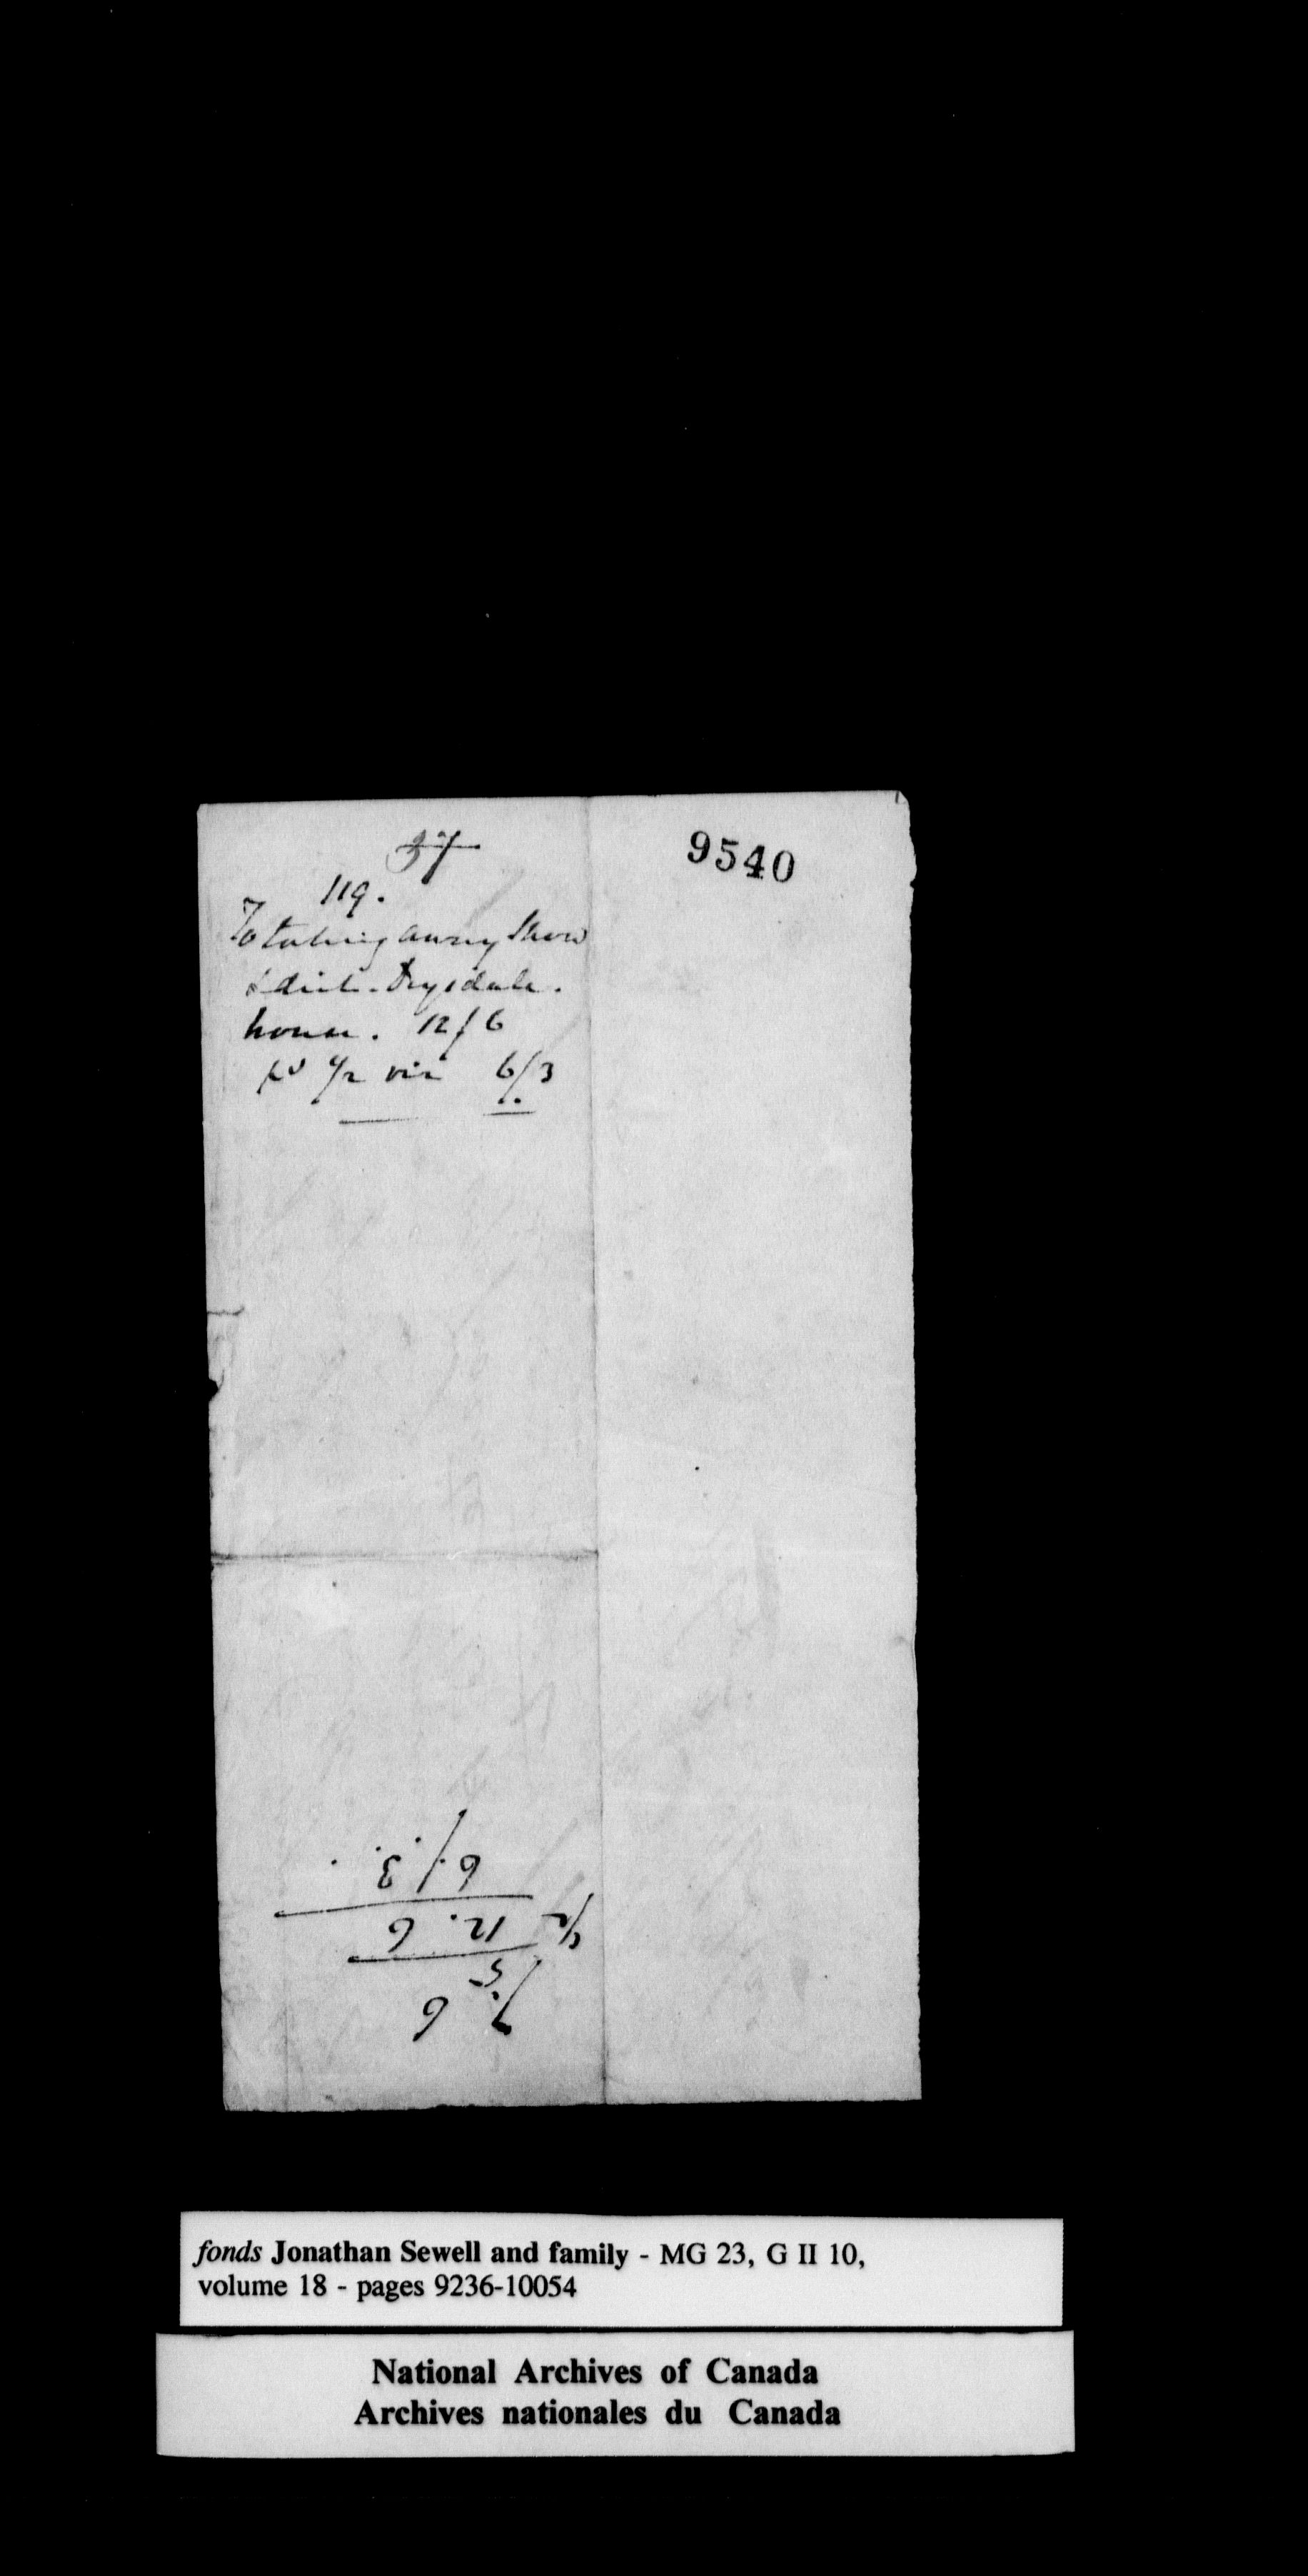 37
119.
9540
To taking away Snow
& dirt - Drysdale.
house. 12/6
pd 1/2 viz 6/3
7. 6
5
1/2 12. 6
6/3
fonds Jonathan Sewell and family - MG 23, G II 10,
volume 18 - pages 9236-10054
National Archives of Canada
Archives nationales du Canada